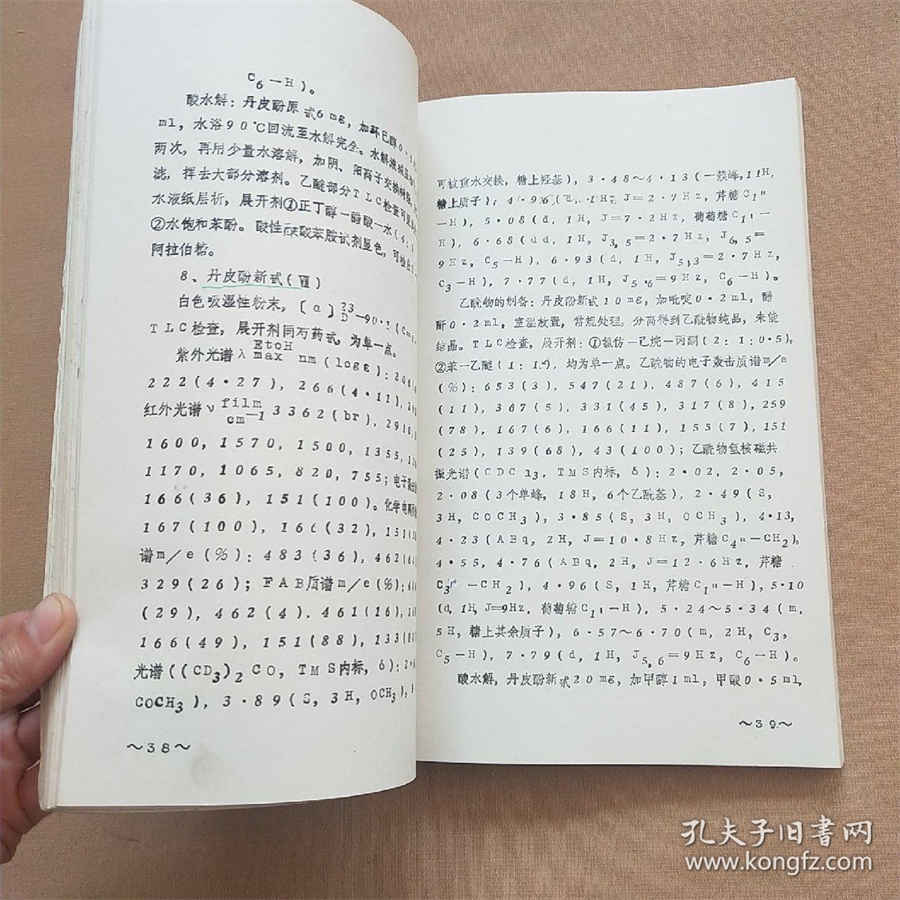 C₆－H)。
酸水解：丹皮酚原甙6mg，加环己醇0·
ml，水浴90℃回流至水解完全。水解液
两次，再用少量水溶解，加阴、阳离子交换树脂
滤，挥去大部分溶剂。乙醚部分TLC检查可
水液纸层析，展开剂①正丁醇—醋酸—水(4：
②水饱和苯酚。酸性 酸苯胺试剂显色，可检出
阿拉伯糖。
8、丹皮酚新甙(Ⅷ)
白色吸湿性粉末，〔α〕23 D—90·
TLC检查，展开剂同芍药甙，为单一点。
紫外光谱λ EtoH max nm(logε)：
222(4·27)，266(4·11)，
红外光谱ν film cm—1 3362(br)，2910
1600，1570，1500，1355，
1170，1065，820，755；电子
166(36)，151(100)。化学电离
167(100)，166(32)，151
谱m／e(%)：483(36)，462(
329(26)；FAB质谱m／e(%)：
(29)，462(4)．461(16)，
166(49)，151(88)，133(
光谱((CD₃)₂CO，TMS内标，δ)：
COCH₃)，3·89(S，3H，OCH₃)，
～38～
可被重水交换，糖上羟基)，3·48～4·13(一簇峰，11H，
糖上质子)；4·96(d，1H，J＝2·7Hz，芹糖C₁″
—H)，5·08(d，1H，J＝7·2Hz，葡萄糖C₁′—
H)，6·68(dd，1H，J₃,₅＝2·7Hz，J₆,₅＝
9Hz，C₅—H)，6·93(d，1H，J₅,₃＝2·7Hz，
C₃—H)，7·77(d，1H，J₅,₆＝9Hz，C₆—H)。
乙酰物的制备：丹皮酚新甙10mg，加吡啶0·2ml，醋
酐0·2ml，室温放置，常规处理，分离得到乙酰物纯品，未能
结晶。TLC检查，展开剂：①氯仿—己烷—丙酮(2：1：0·5)，
②苯—乙醚(1：1·5)，均为单一点。乙酰物的电子轰击质谱m／e
(%)：653(3)，547(21)，487(6)，415
(11)，367(5)，331(45)，317(8)，259
(78)，167(6)，166(11)，155(1)，151
(25)，139(68)，43(100)；乙酰物氢核磁共
振光谱(CDCl₃，TMS内标，δ)：2·02，2·05，
2·08(3个单峰，18H，6个乙酰基)，2·49(S，
3H，COCH₃)，3·85(S，3H，OCH₃)，4·13，
4·23(ABq，2H，J＝10·8Hz，芹糖C₄″—CH₂)，
4·55，4·76(ABq，2H，J＝12·6Hz，芹糖
C₃″—CH₂)，4·96(S，1H，芹糖C₁″—H)，5·10
(d，1H，J＝9Hz，葡萄糖C₁′—H)，5·24～5·34(m，
5H，糖上其余质子)，6·57～6·70(m，2H，C₃，
C₅—H)，7·79(d，1H，J₅,₆＝9Hz，C₆—H)。
酸水解，丹皮酚新甙20mg，加甲醇1ml，甲酸0·5ml，
～39～
孔夫子旧書网
www.kongfz.com